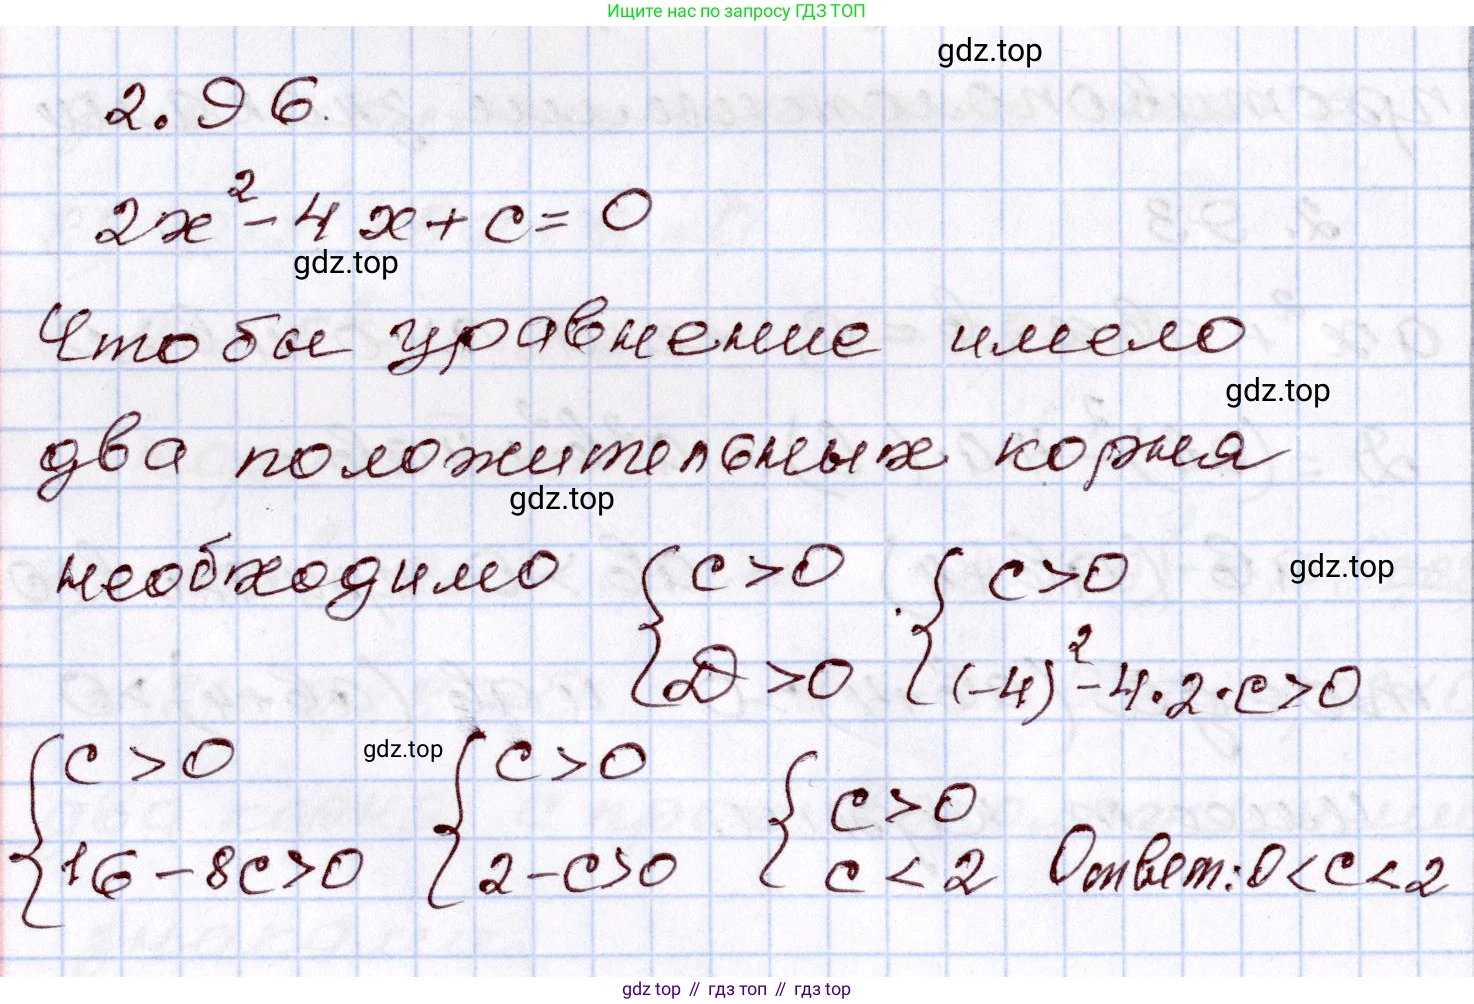 Ищите нас по запросу ГДЗ ТОП
gdz.top
2.96.
2x² - 4x + c = 0
gdz.top
Чтобы уравнение имело
gdz.top
два положительных корня
gdz.top
необходимо { c > 0 { c > 0
gdz.top
D > 0 (-4)² - 4·2·c > 0
{ c > 0 gdz.top { c > 0 { c > 0
16 - 8c > 0 2 - c > 0 c < 2 Ответ: 0 < c < 2
gdz top // гдз топ // гдз top